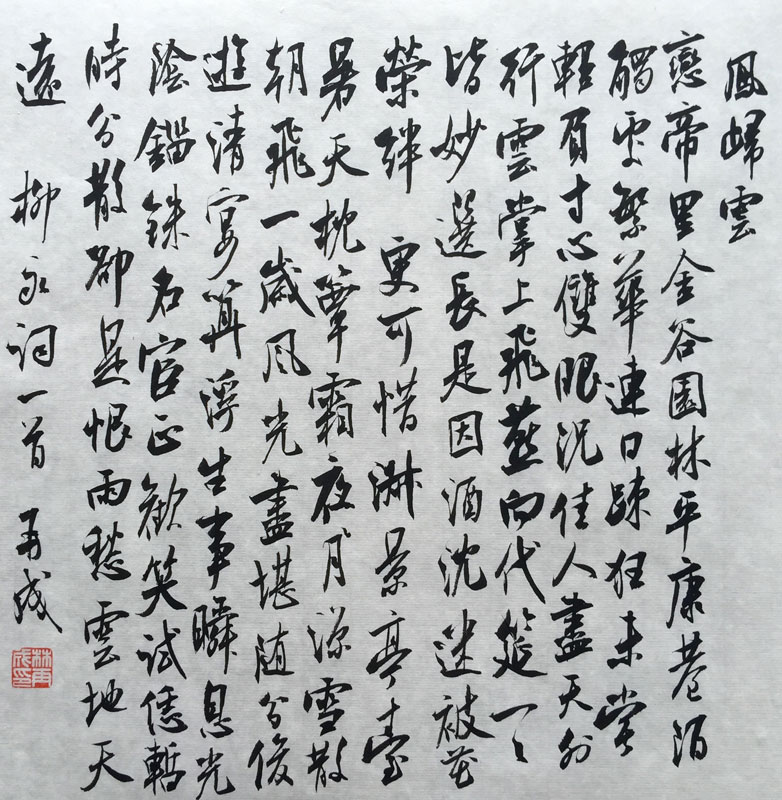 鳳歸雲
戀帝里金谷園林平康巷陌
觸處繁華連日疎狂未嘗
輕負寸心雙眼況佳人盡天外
行雲掌上飛燕向代筵一々
皆妙選長是因酒沈迷被花
榮絆 更可惜淑景亭臺
暑天枕簟霜夜月涼雪散
朝飛一歲風光盡堪随分俊
遊清宴算浮生事瞬息光
陰錙銖名宦正歡笑試恁暫
時分散卻是恨雨愁雲地天
遠 柳永詞一首 再成
林再成印